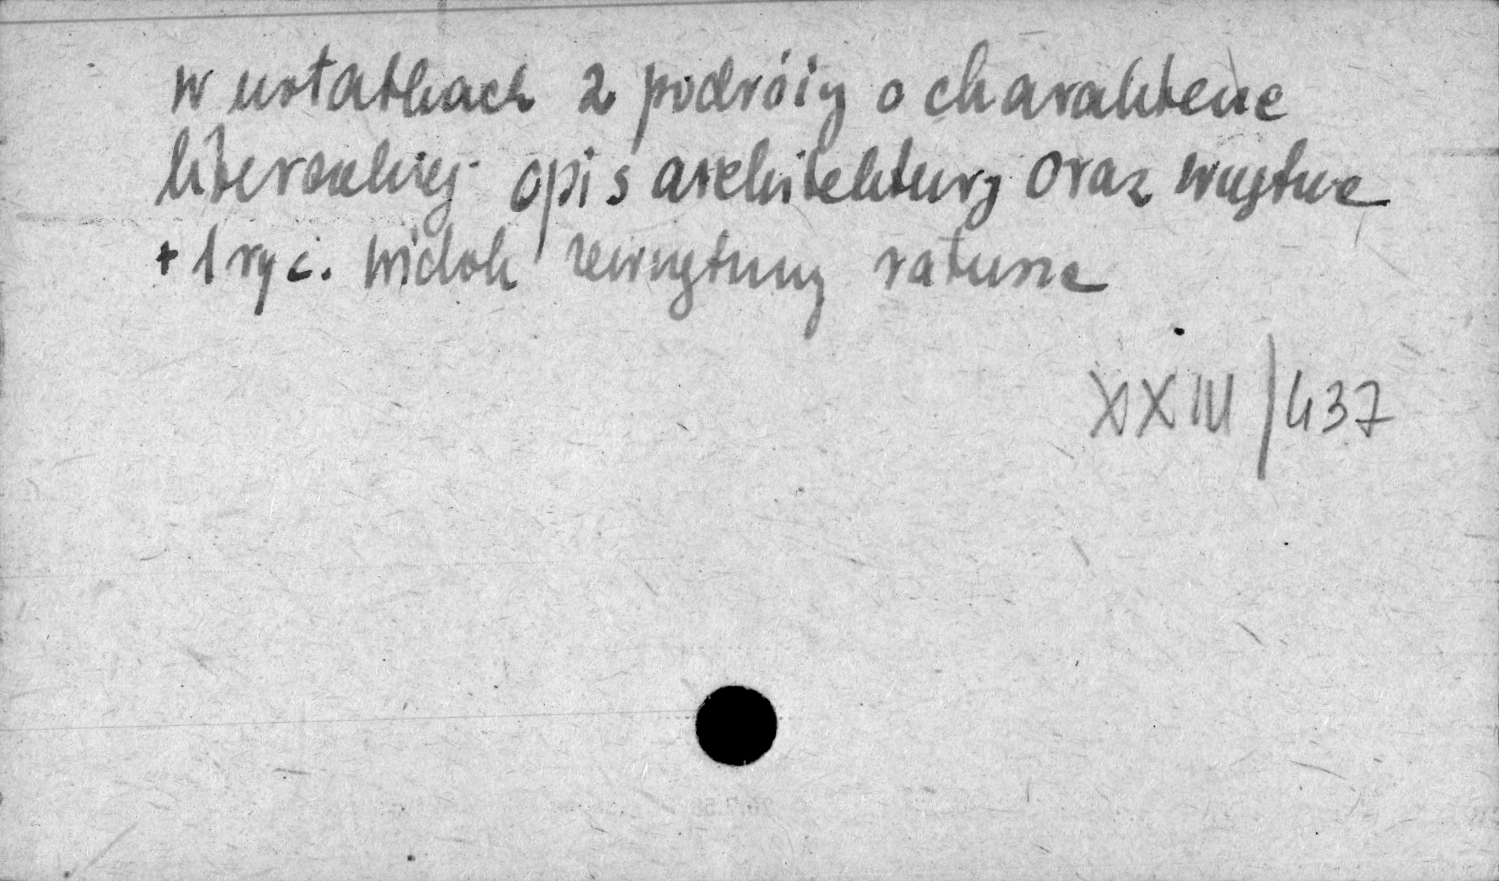 w notatkach z podróży o charakterze
literackiej opis architektury oraz wnętrze
+ 1 ryc. widok zewnętrzny ratusza
XXIII/437